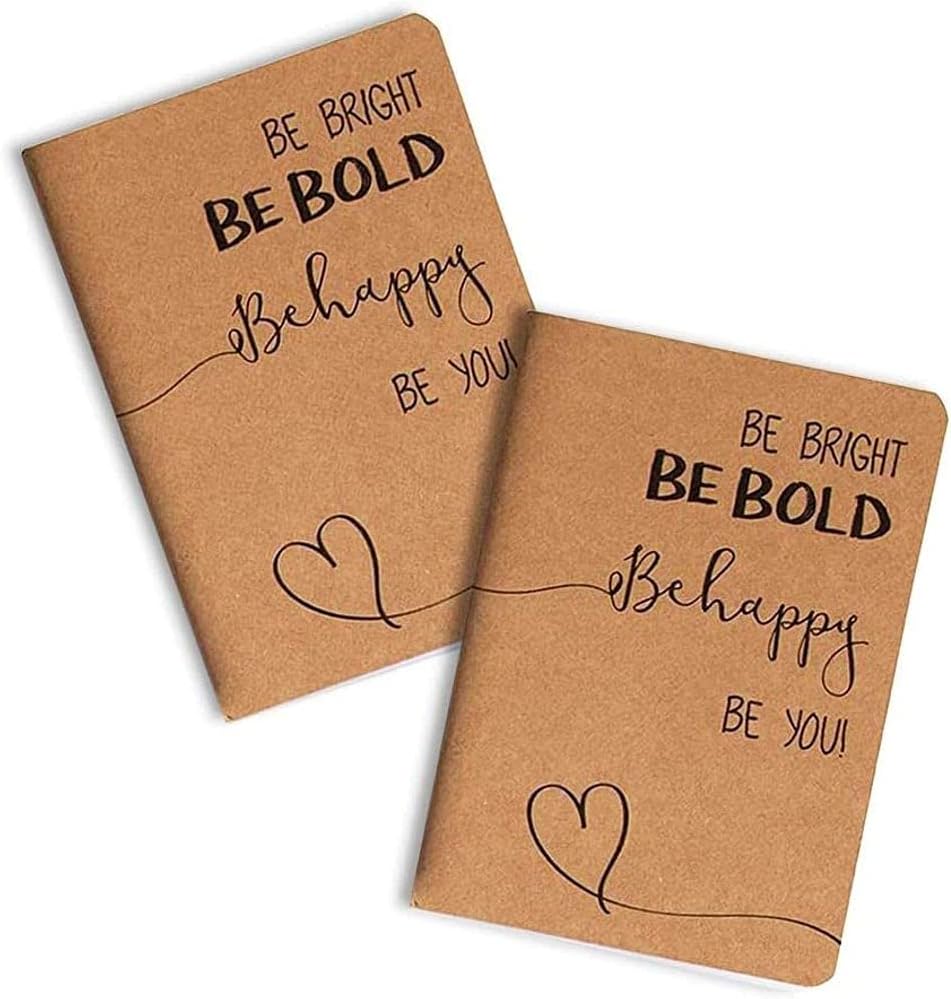 BE BRIGHT
BE BOLD
Be happy
BE YOU!
BE BRIGHT
BE BOLD
Be happy
BE YOU!